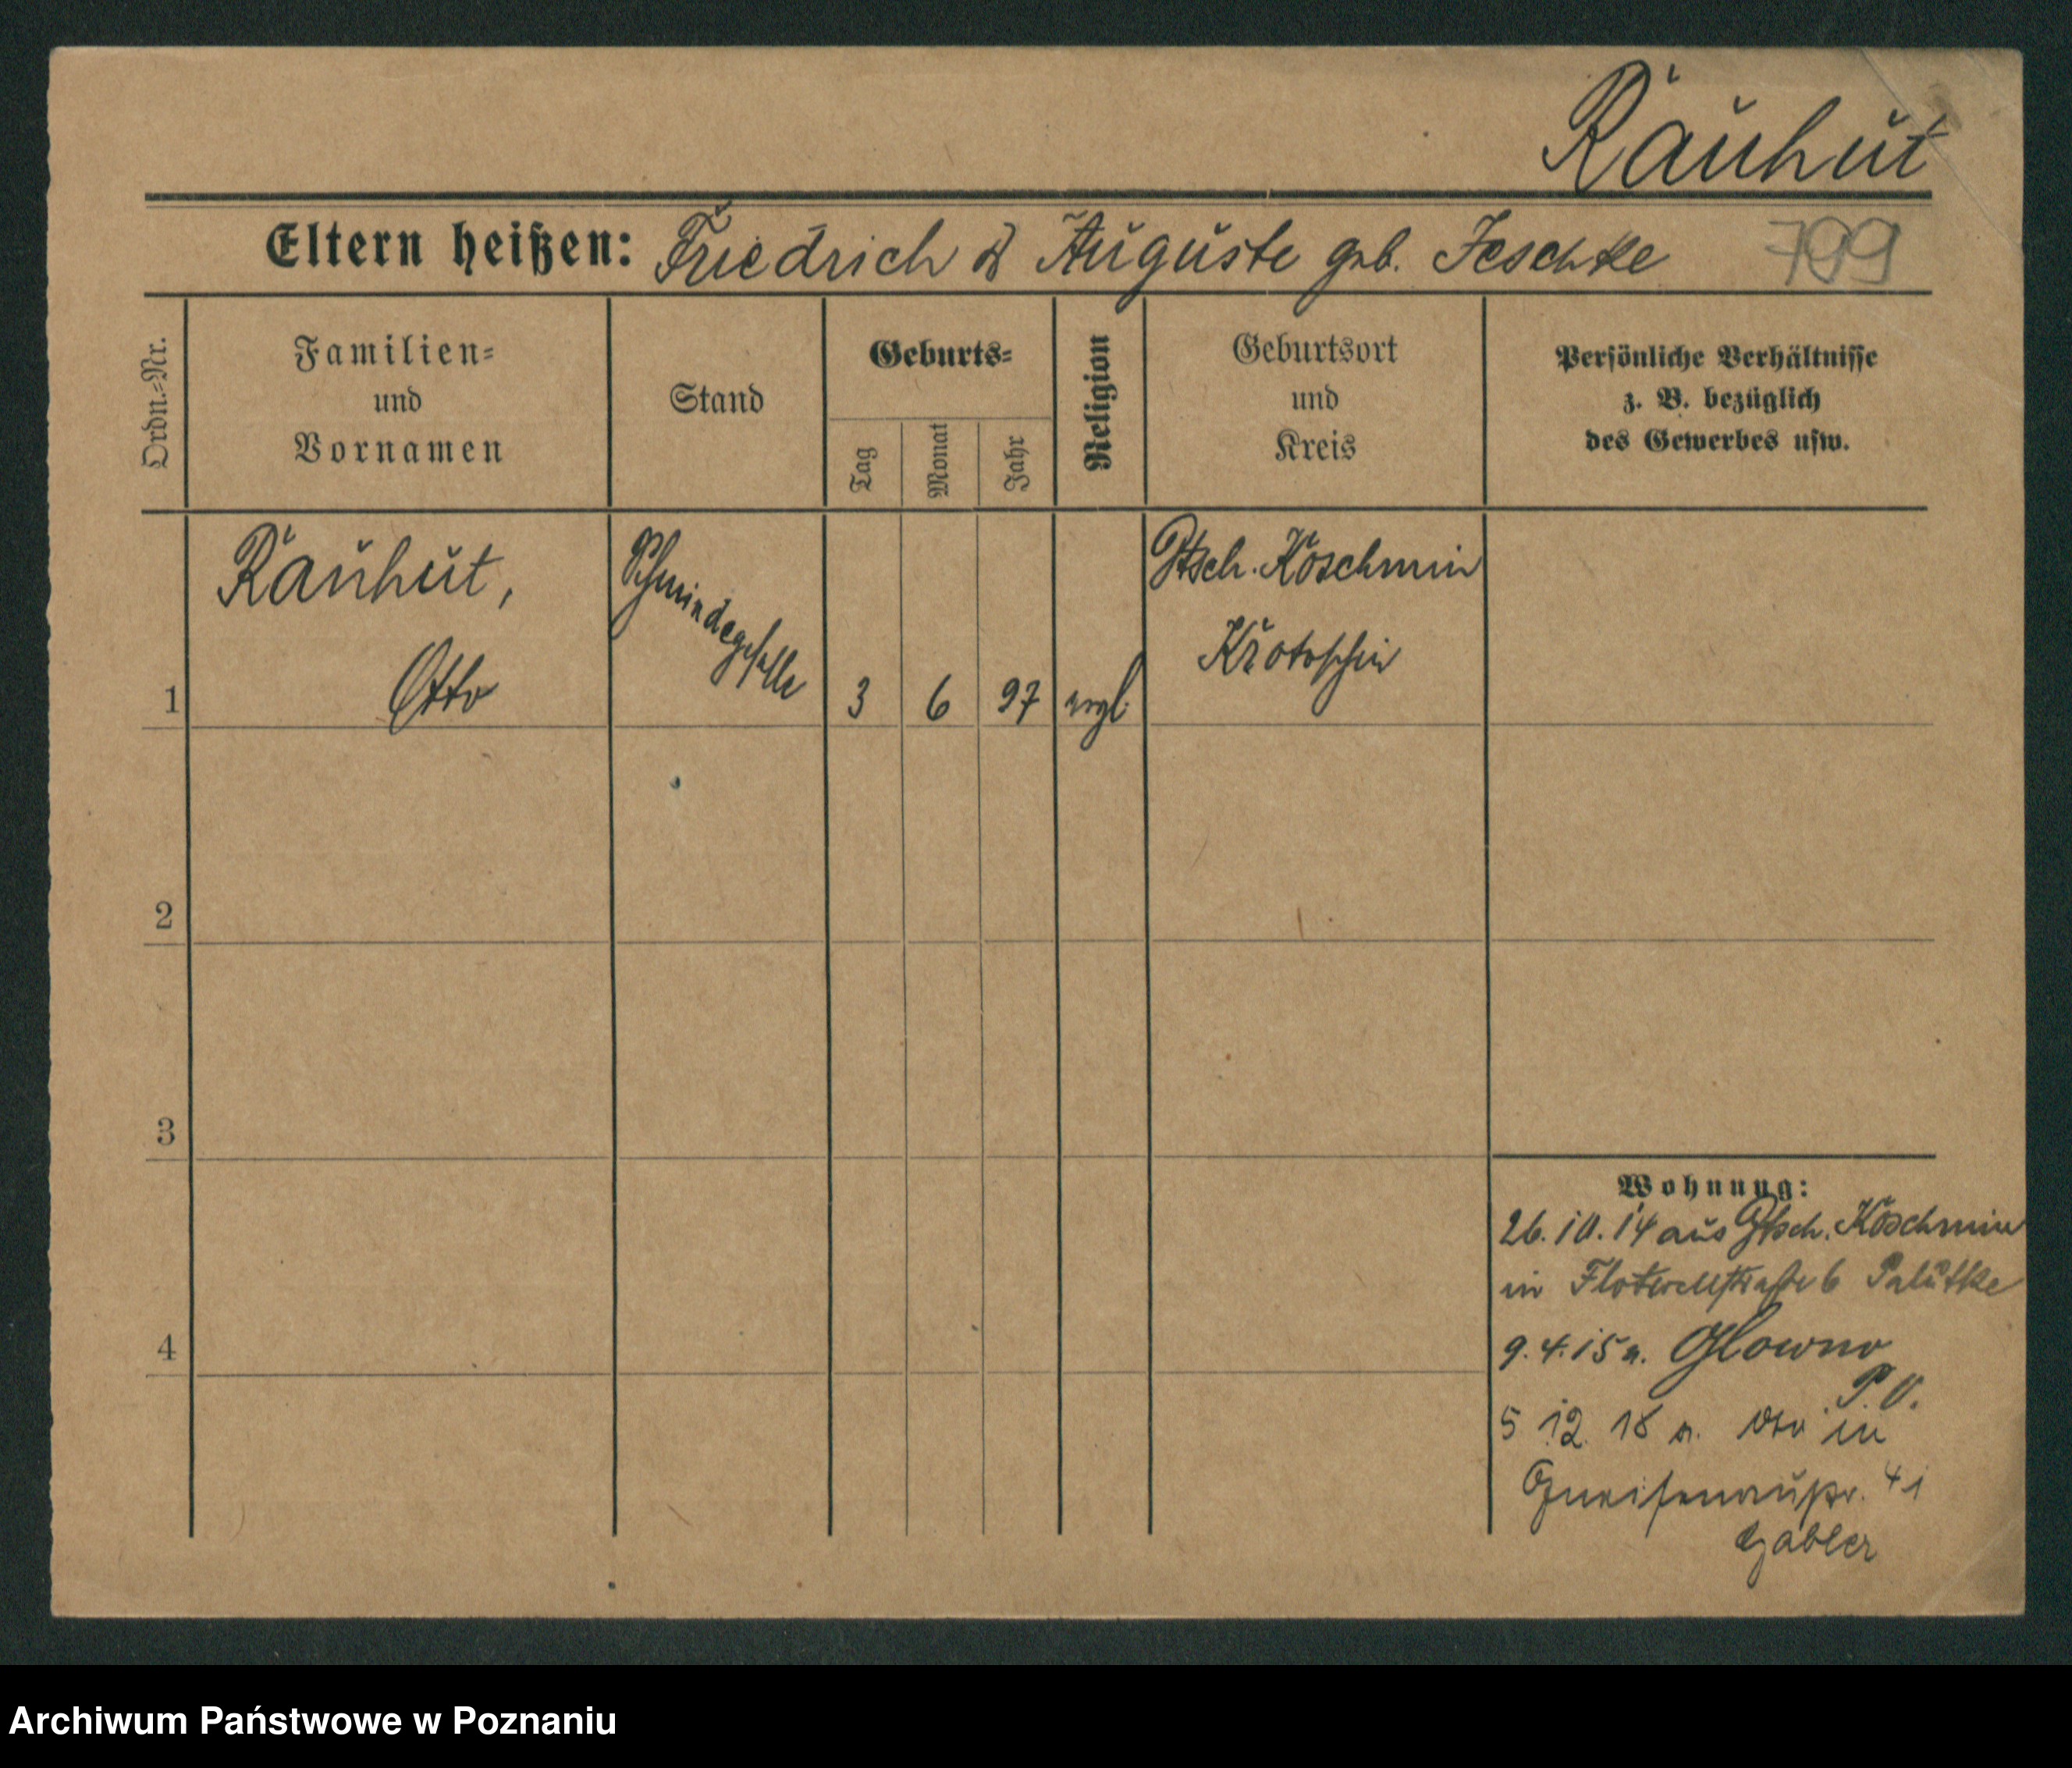 Rauhut
Eltern heißen: Friedrich & Auguste geb. Jeschke 799
Ordn.=Nr.
Familien=
und
Vornamen
Stand
Geburts=
Tag
Monat
Jahr
Religion
Geburtsort
und
Kreis
Persönliche Verhältnisse
z. B. bezüglich
des Gewerbes usw.
1
Rauhut,
Otto
3 6 97 evgl.
Koschmin
Krotoschin
2
3
4
Wohnung:
26.10.14 aus Koschmin
in Flotwellstraße 6 Palutke
9.4.15 n. Glowno
P. O.
5 12 18 n. in
Gneisenaustr. 41
Gabler
Archiwum Państwowe w Poznaniu